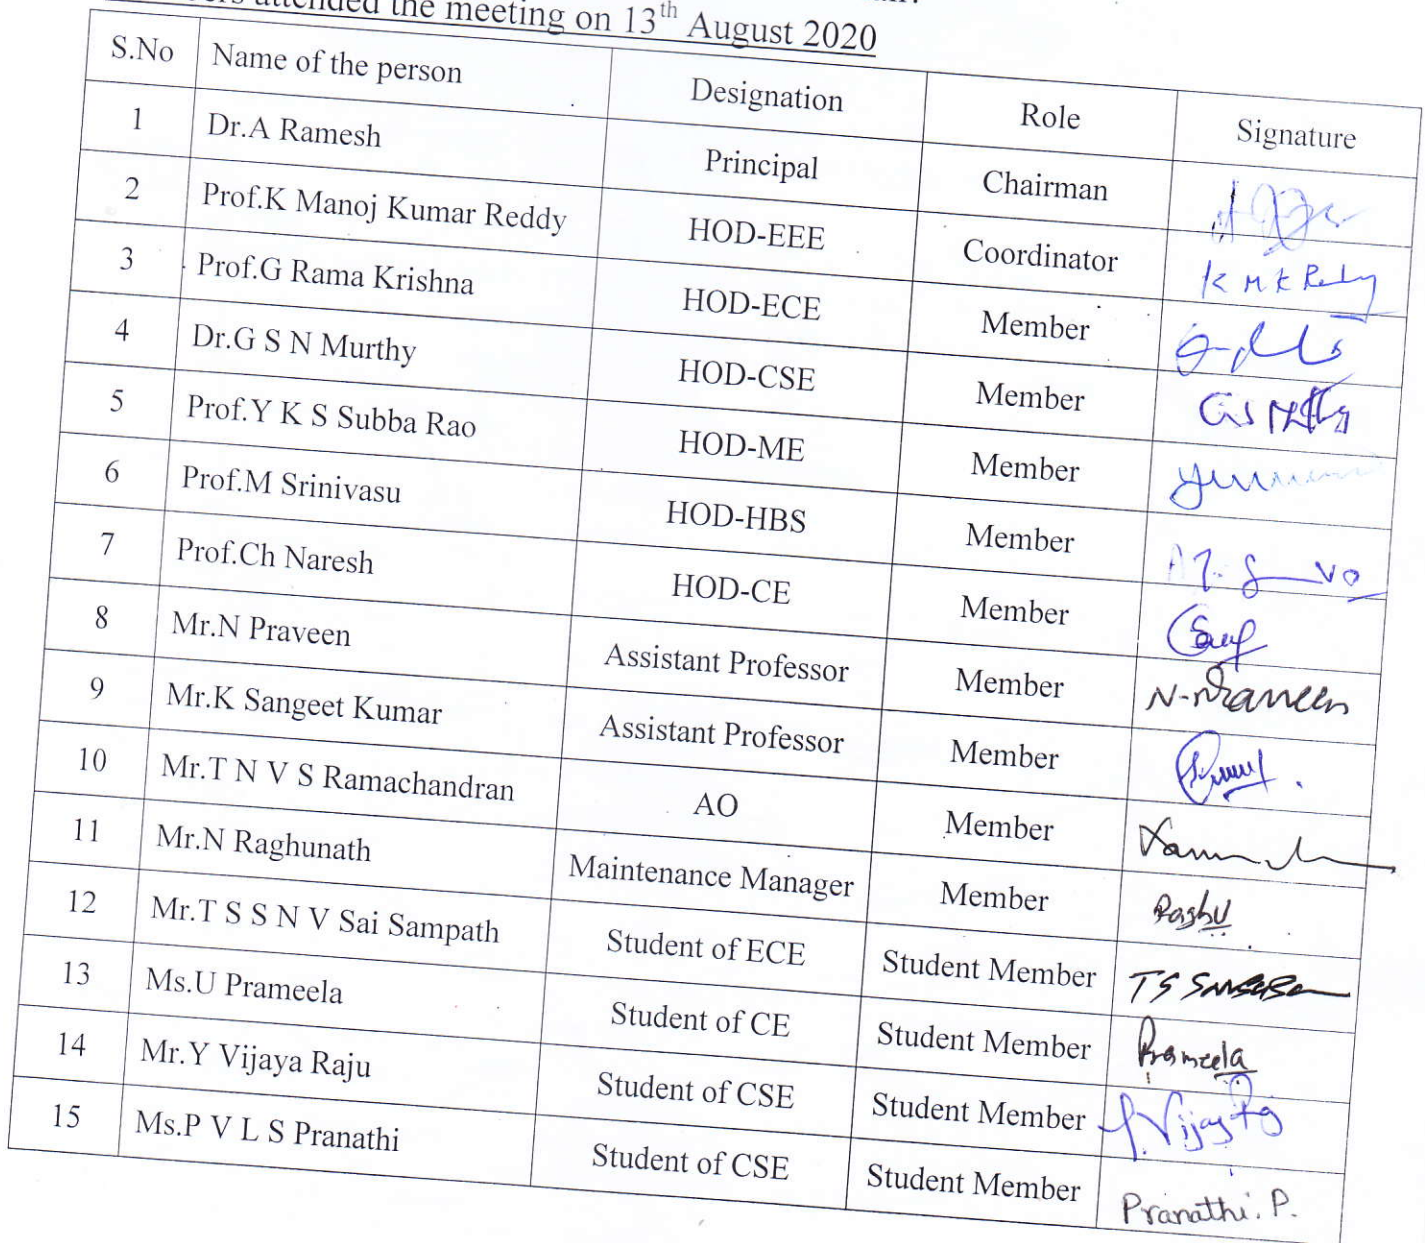 attended the meeting on 13th August 2020
S.No Name of the person Designation Role Signature
1 Dr.A Ramesh Principal Chairman
2 Prof.K Manoj Kumar Reddy HOD-EEE Coordinator K M K Reddy
3 Prof.G Rama Krishna HOD-ECE Member
4 Dr.G S N Murthy HOD-CSE Member
5 Prof.Y K S Subba Rao HOD-ME Member
6 Prof.M Srinivasu HOD-HBS Member
7 Prof.Ch Naresh HOD-CE Member
8 Mr.N Praveen Assistant Professor Member N-Praveen
9 Mr.K Sangeet Kumar Assistant Professor Member
10 Mr.T N V S Ramachandran AO Member
11 Mr.N Raghunath Maintenance Manager Member Raghu
12 Mr.T S S N V Sai Sampath Student of ECE Student Member
13 Ms.U Prameela Student of CE Student Member Prameela
14 Mr.Y Vijaya Raju Student of CSE Student Member
15 Ms.P V L S Pranathi Student of CSE Student Member Pranathi. P.